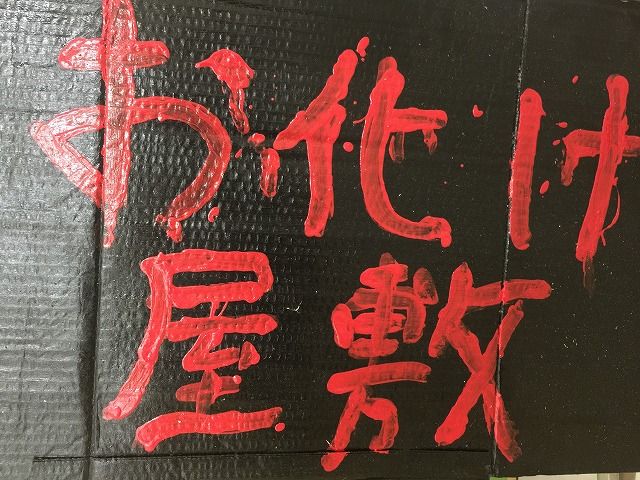 お化け
屋敷